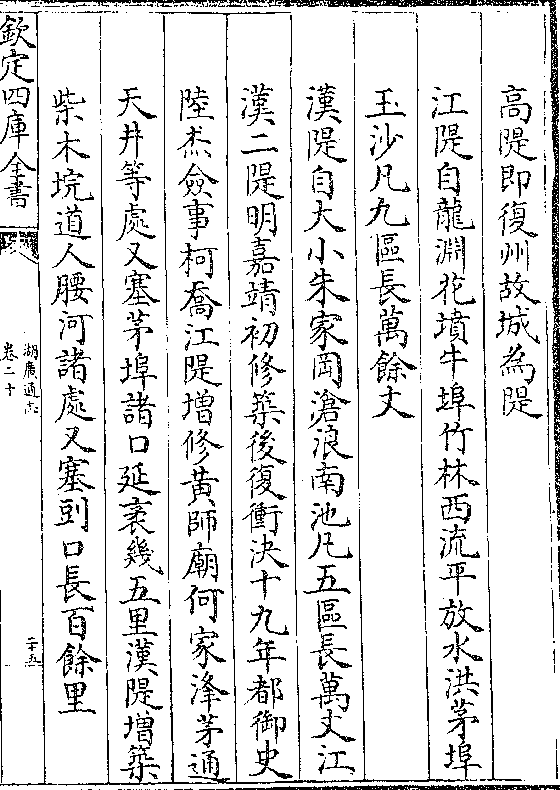 高隄即復州故城為隄
江隄自龍淵花墳牛埠竹林西流平放水洪茅埠
玉沙凡九區長萬餘丈
漢隄自大小朱家岡滄浪南池凡五區長萬丈江
漢二隄明嘉靖初修築後復衝決十九年都御史
陸杰僉事柯喬江隄增修黄師廟何家洚茅通
天井等處又塞茅埠諸口延袤幾五里漢隄增築
柴木垸道人腰河諸處又塞剅口長百餘里
欽定四庫全書
湖廣通志
卷二十
二十五